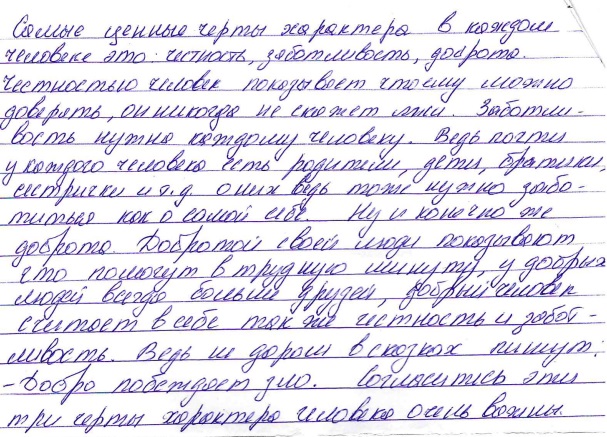 Самые ценные черты характера в каждом
человеке это: честность, заботливость, доброта.
Честностью человек показывает что ему можно
доверять, он никогда не скажет лжи. Заботли-
вость нужна каждому человеку. Ведь почти
у каждого человека есть родители, дети, братики,
сестрички и т.д. о них ведь тоже нужно забо-
титься как о самой себе. Ну и конечно же
доброта. Добротой своей люди показывают
что помогут в трудную минуту, у добрых
людей всегда больше друзей, добрый человек
считает в себе так же честность и забот-
ливость. Ведь не даром в сказках пишут:
-Добро побеждает зло. Согласитись эти
три черты характера человека очень важны.